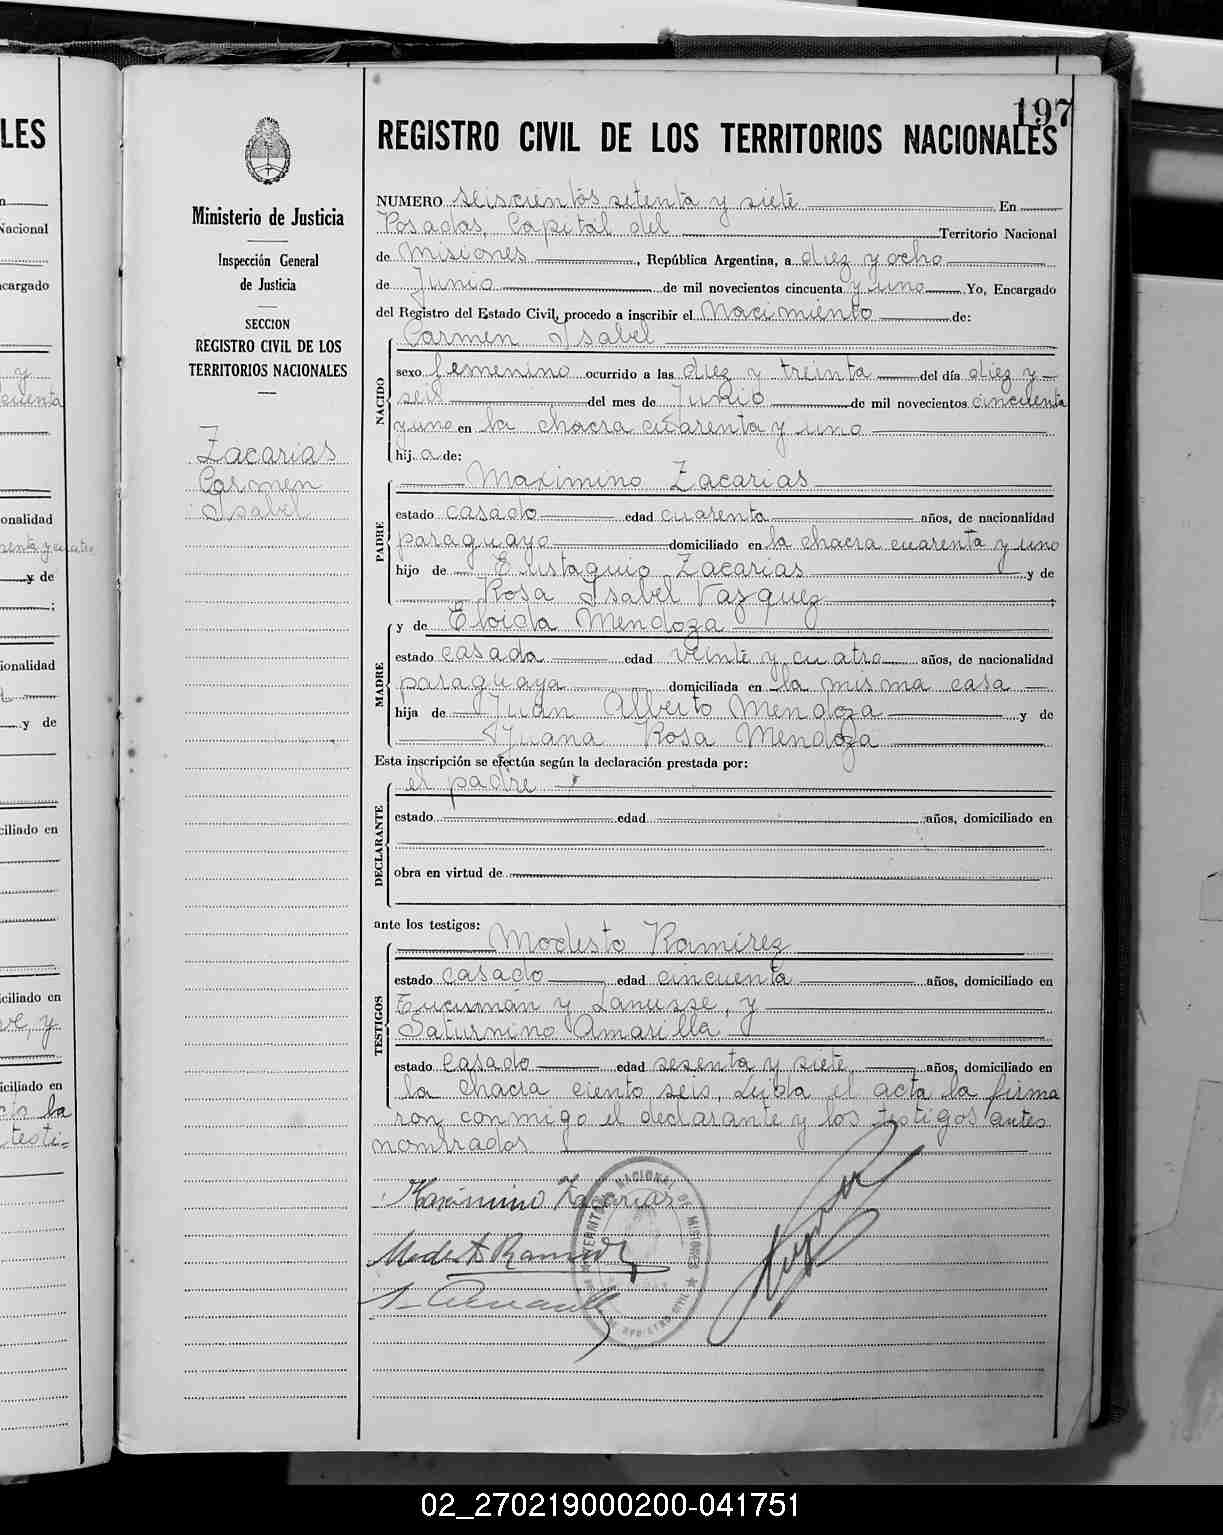 LES
n
Nacional
ncargado
y
cuenta
onalidad
y de
;
ionalidad
y de
ciliado en
ciliado en
y
iciliado en
la
testi=
197
Ministerio de Justicia
Inspección General
de Justicia
SECCION
REGISTRO CIVIL DE LOS
TERRITORIOS NACIONALES
Zacarias
Carmen
Isabel
REGISTRO CIVIL DE LOS TERRITORIOS NACIONALES
NUMERO seiscientos setenta y siete En
Posadas, Capital del Territorio Nacional
de Misiones, República Argentina, a diez y ocho
de Junio de mil novecientos cincuenta y uno Yo, Encargado
del Registro del Estado Civil, procedo a inscribir el Nacimiento de:
Carmen Isabel
NACIDO
sexo femenino ocurrido a las diez y treinta del día diez y
seis del mes de Junio de mil novecientos cincuenta
y uno en la chacra cuarenta y uno
hija de:
Maximino Zacarias
PADRE
estado casado edad cuarenta años, de nacionalidad
paraguayo domiciliado en la chacra cuarenta y uno
hijo de Eustaquio Zacarias y de
Rosa Isabel Vazquez ;
y de Eloida Mendoza
MADRE
estado casada edad veinte y cuatro años, de nacionalidad
paraguaya domiciliada en la misma casa
hija de Juan Alberto Mendoza y de
Juana Rosa Mendoza
Esta inscripción se efectúa según la declaración prestada por:
el padre
DECLARANTE
estado edad años, domiciliado en
obra en virtud de
ante los testigos:
Modesto Ramirez
TESTIGOS
estado casado edad cincuenta años, domiciliado en
Tucumán y Lanusse, y
Saturnino Amarilla
estado casado edad sesenta y siete años, domiciliado en
la chacra ciento seis. Leida el acta la firma
ron conmigo el declarante y los testigos antes
nombrados
Maximino Zacarias
Modesto Ramirez
TERRITORIO NACIONAL DE MISIONES
REGISTRO CIVIL
02_270219000200-041751